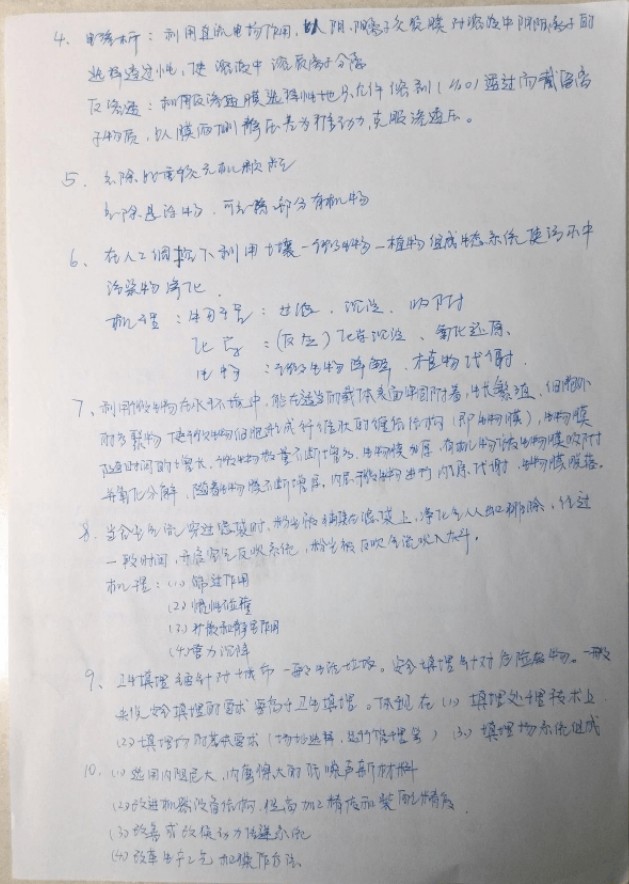 4、电渗析：利用直流电场作用，以阴、阳离子交换膜对溶液中阴阳离子的
选择透过性，使溶液中溶质离子分离
反渗透：利用反渗透膜选择性地只允许溶剂（水）透过而截留离
子物质，以膜两侧静压差为推动力，克服渗透压。
5、去除比重较大无机颗粒
去除悬浮物，可去除部分有机物
6、在人工调控下利用土壤－微生物－植物组成生态系统使污水中
污染物净化
机理：物理：过滤、沉淀、吸附
化学：（反应）化学沉淀、氧化还原、
生物：微生物降解、植物代谢
7、利用微生物在水环境中，能在适当的载体表面牢固附着，生长繁殖，细胞外
多聚物使微生物细胞形成纤维状的缠结结构（即生物膜），生物膜
随时间的增大，微生物数量不断增加，生物膜加厚，有机物被生物膜吸附
并氧化分解，随着生物膜不断增厚，内层微生物进行内源代谢，生物膜脱落。
8、当含尘气流穿过滤袋时，粉尘被捕集在滤袋上，净化气从出口排除，经过
一段时间，开启空气反吹系统，粉尘被反吹气流吹入灰斗。
机理：(1) 筛过作用
(2) 惯性碰撞
(3) 扩散和静电作用
(4) 重力沉降
9、卫生填埋主要针对城市一般生活垃圾。安全填埋针对危险废物。一般
来说安全填埋的要求要高于卫生填埋。体现在 (1) 填埋处理技术上
(2) 填埋场的基本要求（场址选择、运行管理等）(3) 填埋场系统组成
10、(1) 选用内阻尼大、内摩擦大的低噪声新材料
(2) 改进机器设备结构，提高加工精度和装配精度
(3) 改善或改换动力传递系统
(4) 改革生产工艺和操作方法